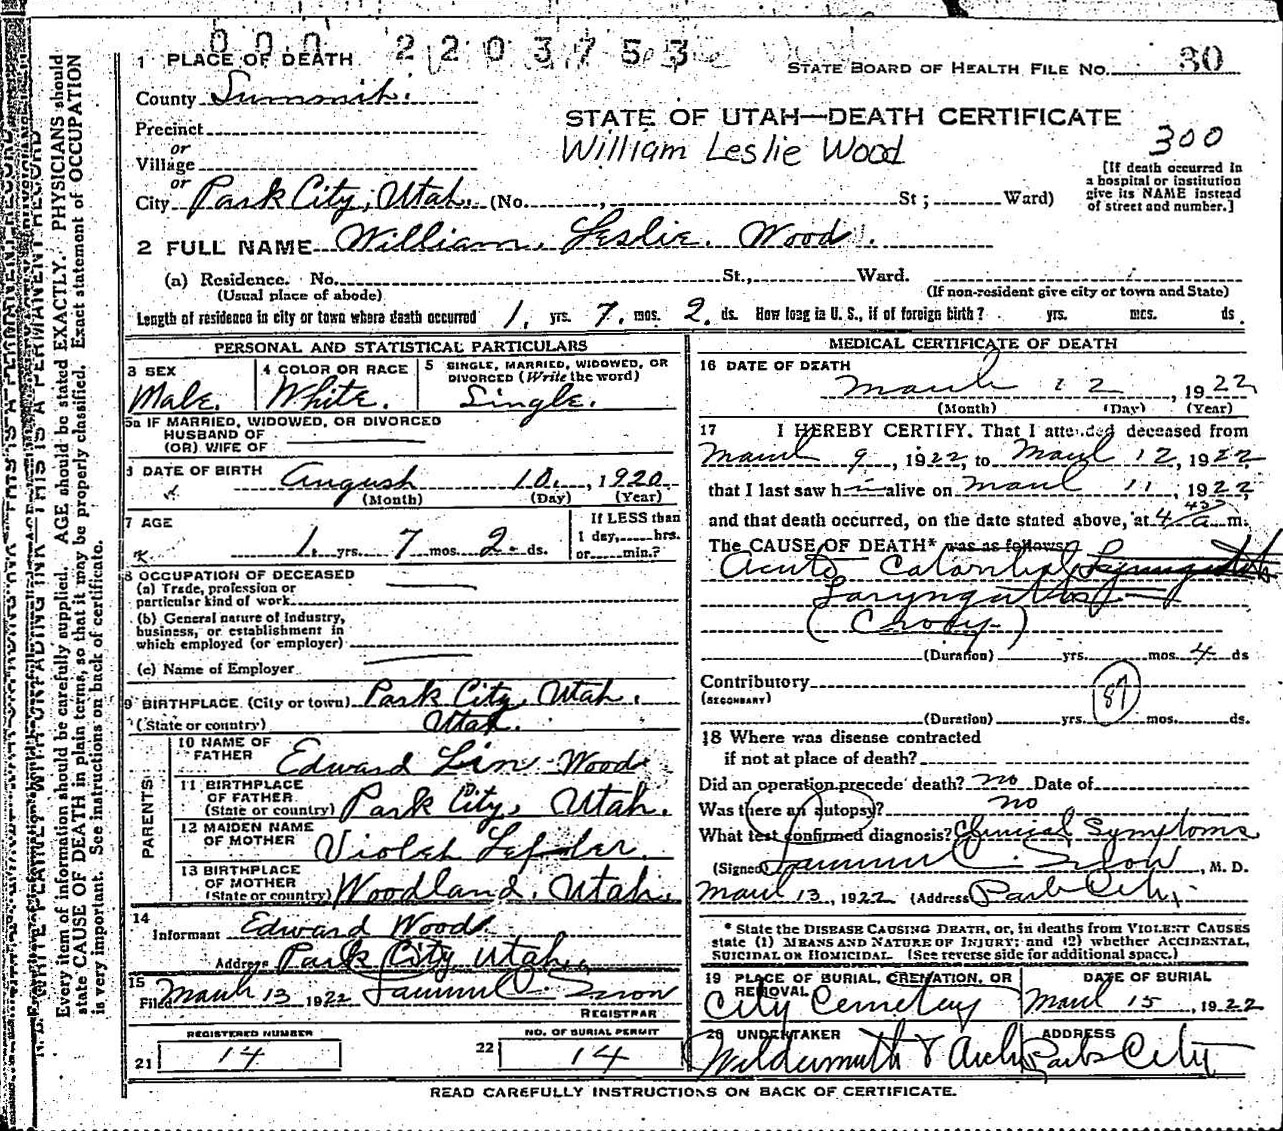 000 2203753
1 PLACE OF DEATH
STATE BOARD OF HEALTH FILE NO. 30
County Summit.
STATE OF UTAH—DEATH CERTIFICATE
Precinct
William Leslie Wood
300
or
Village
or
[If death occurred in
a hospital or institution
give its NAME instead
of street and number.]
City Park City, Utah. (No. , St ; Ward)
2 FULL NAME William Leslie Wood.
(a) Residence. No. St., Ward.
(Usual place of abode) (If non-resident give city or town and State)
Length of residence in city or town where death occurred 1. yrs. 7. mos. 2. ds. How long in U. S., if of foreign birth? yrs. mos. ds.
PERSONAL AND STATISTICAL PARTICULARS
3 SEX
Male.
4 COLOR OR RACE
White.
5 SINGLE, MARRIED, WIDOWED, OR
DIVORCED (Write the word)
Single.
5a IF MARRIED, WIDOWED, OR DIVORCED
HUSBAND OF
(OR) WIFE OF
6 DATE OF BIRTH
August 10, 1920
(Month) (Day) (Year)
7 AGE
1. yrs. 7 mos. 2. ds.
If LESS than
1 day, hrs.
or min.?
8 OCCUPATION OF DECEASED
(a) Trade, profession or
particular kind of work
(b) General nature of industry,
business, or establishment in
which employed (or employer)
(c) Name of Employer
9 BIRTHPLACE (City or town) Park City, Utah.
(State or country) Utah.
PARENTS
10 NAME OF
FATHER Edward Lin Wood
11 BIRTHPLACE
OF FATHER
(State or country) Park City, Utah.
12 MAIDEN NAME
OF MOTHER Violet
13 BIRTHPLACE
OF MOTHER
(State or country) Woodland, Utah.
14
Informant Edward Wood
Address Park City Utah.
15
Filed March 13 1922
REGISTRAR
REGISTERED NUMBER
21 14
NO. OF BURIAL PERMIT
22 14
MEDICAL CERTIFICATE OF DEATH
16 DATE OF DEATH
March 12, 1922
(Month) (Day) (Year)
17 I HEREBY CERTIFY. That I attended deceased from
March 9, 1922, to March 12, 1922
that I last saw him alive on March 11, 1922
and that death occurred, on the date stated above, at 4 a m.
The CAUSE OF DEATH* was as follows:
Acute Catarrhal
Laryngitis
(Croup)
(Duration) yrs. mos. 4 ds
Contributory
(SECONDARY)
87
(Duration) yrs. mos. ds.
18 Where was disease contracted
if not at place of death?
Did an operation precede death? no Date of
Was there an autopsy? no
What test confirmed diagnosis? Clinical Symptoms
(Signed) , M. D.
March 13, 1922 (Address Park City.
* State the DISEASE CAUSING DEATH, or, in deaths from VIOLENT CAUSES
state (1) MEANS AND NATURE OF INJURY; and (2) whether ACCIDENTAL,
SUICIDAL OR HOMICIDAL. (See reverse side for additional space.)
19 PLACE OF BURIAL, CREMATION, OR
REMOVAL
City Cemetery
DATE OF BURIAL
March 15, 1922
20 UNDERTAKER
Wildermuth &
ADDRESS
Park City
READ CAREFULLY INSTRUCTIONS ON BACK OF CERTIFICATE.
WRITE PLAINLY WITH UNFADING INK—THIS IS A PERMANENT RECORD
Every item of information should be carefully supplied. AGE should be stated EXACTLY. PHYSICIANS should
state CAUSE OF DEATH in plain terms, so that it may be properly classified. Exact statement of OCCUPATION
is very important. See instructions on back of certificate.